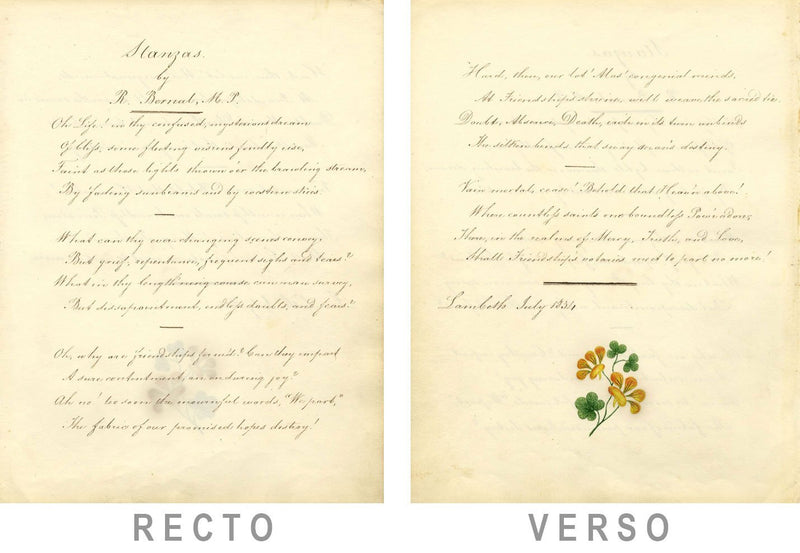 Stanzas.
by
R. Bernal, M.P.
Oh Life! in thy confused, mysterious dream
Of bliss, some fleeting visions fondly rise,
Faint as those lights thrown o'er the brawling stream,
By fading sunbeams and by eastern skies.
What can thy ever-changing scenes convey,
But grief, repentance, frequent sighs and tears?
What in thy length'ning course can man survey,
But dissapointment, endless doubts, and fears?
Oh, why are friendships form'd? Can they impart
A sure contentment, an enduring joy?
Ah no! too soon the mournful words, "We part,"
The fabric of our promised hopes destroy!
Hard, then, our lot! Alas! congenial minds,
At Friendship's shrine, will weave the sacred tie.
Doubt, Absence, Death, each in its turn unbinds
The silken bands that sway man's destiny.
Vain mortal, cease! Behold that Heav'n above!
Where countless saints one boundless Pow'r adore;
There, in the realms of Mercy, Truth, and Love,
Shall Friendship's votaries meet to part no more!
Lambeth July 1834
RECTO
VERSO